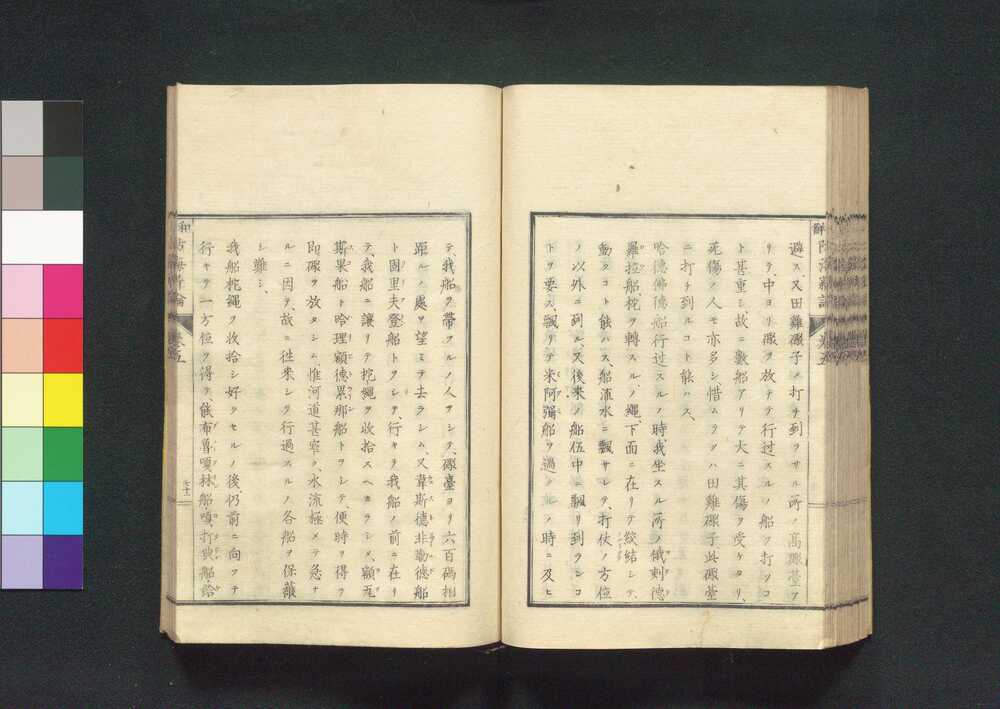 避ス、又田雞礮子ノ打チ到ラサル所ノ高礮臺ア
リテ、中ヨリ礮ヲ放チテ行过スルノ船ヲ打ツコ
ト甚重シ、故ニ數船アリテ大ニ其傷ヲ受ケタリ、
死傷ノ人モ亦多シ、惜ムラクハ田雞礮子此礮臺
ニ打チ到ルコト能ハス、
哈德佛德船行过スルノ時、我坐スル所ノ俄刺德
羅拉船柁ヲ轉スルノ繩、下面ニ在リテ絞結シテ、
動クコト能ハス、船流水ニ飄サレテ、打仗ノ方位
ノ以外ニ到ル、又後來ノ船伍中ニ飄リ到ランコ
トヲ要ス、飄リテ米阿彌船ヲ過クルノ時ニ及ヒ
テ、我船ヲ帶フルノ人ヲシテ、礮臺ヨリ六百碼相
距ルノ處ヲ望ミテ去ラシム、又韋斯德非勒德船
ト固里夫登船トヲシテ、行キテ我船ノ前ニ在リ
テ、我船ニ讓リテ柁繩ヲ收拾スヘカラシメ、額瓦
斯果船ト哈理額德累那船トヲシテ便時ヲ得ハ
即礮ヲ放タシム、惟河道甚窄ク、水流極メテ急ナ
ルニ因テ、故ニ徃來シテ行過スルノ各船ヲ保護
シ難シ、
我船柁繩ヲ收拾シ好クセルノ後、仍前ニ向ツテ
行キテ一方位ヲ得テ、能布魯嗄林船、嗄打典船、給